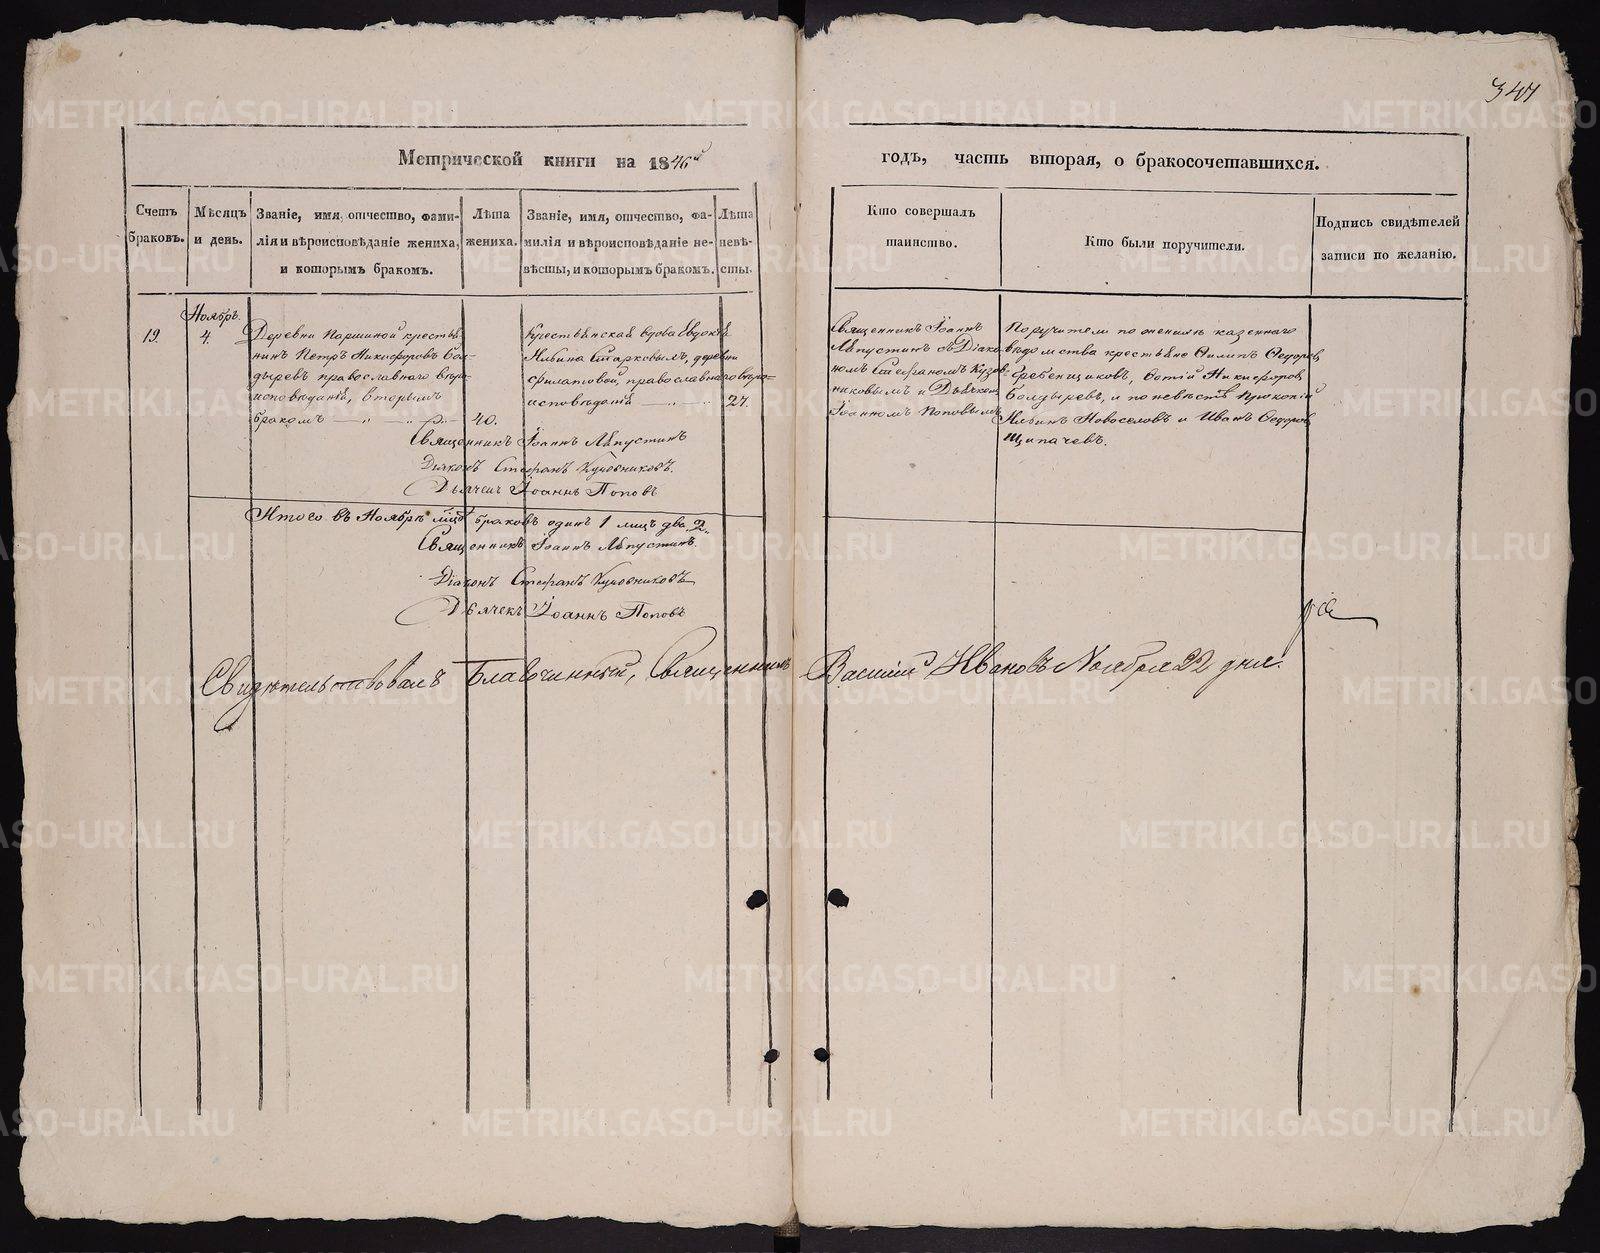 341
Метрической книги на 1846й
годъ, часть вторая, о бракосочетавшихся.
Счетъ браковъ.
Мѣсяцъ и день.
Званіе, имя, отчество, фами-
лія и вѣроисповѣданіе жениха,
и которымъ бракомъ.
Лѣта жениха.
Званіе, имя, отчество, фа-
милія и вѣроисповѣданіе не-
вѣсты, и которымъ бракомъ.
Лѣта невѣ-
сты.
Кто совершалъ
таинство.
Кто были поручители.
Подпись свидѣтелей
записи по желанію.
19.
Ноябрь.
4.
Деревни Паршиной крестья-
нинъ Петръ Никифоровъ Бол-
дыревъ православнаго вѣро-
исповѣданія, вторымъ
бракомъ
40.
Крестьянская вдова Евдокія
Албина Старковымъ, деревни
Филатовой, православнаго вѣро-
исповѣданія
27.
Священникъ Іоаннъ
Ляпустинъ съ Діако-
номъ Стефаномъ Кузов-
никовымъ и Дьячкомъ
Іоанномъ Поповымъ
Поручители по женихѣ казеннаго
вѣдомства крестьяне Филипъ Ѳедоровъ
Гребенщиковъ, Фотій Никифоровъ
Болдыревъ, и по невѣстѣ Прокопій
Албинъ Новоселовъ и Иванъ Ѳедоровъ
Щипачевъ.
Священникъ Іоаннъ Ляпустинъ
Діаконъ Стефанъ Кузовниковъ.
Дьячекъ Іоаннъ Поповъ
Итого въ Ноябрѣ мцѣ браковъ одинъ 1 лицъ два 2.
Священникъ Іоаннъ Ляпустинъ.
Діаконъ Стефанъ Кузовниковъ
Дьячекъ Іоаннъ Поповъ
Свидѣтельствовалъ Благочинный, Священникъ Василій Ивановъ Ноября 22 дня.
METRIKI.GASO-URAL.RU